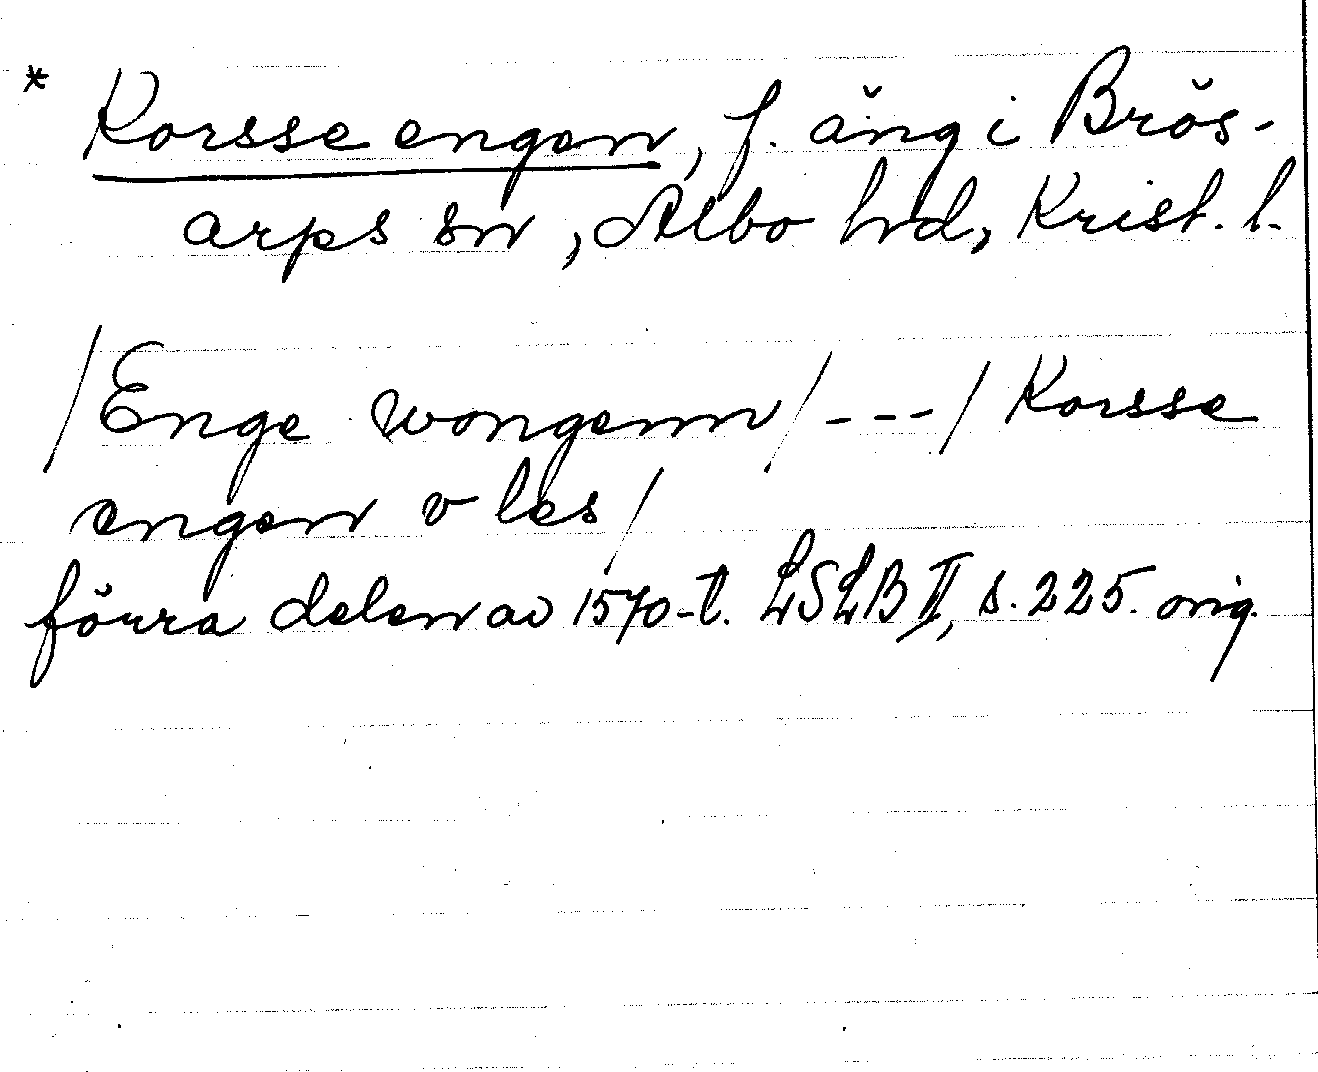 * Korsse engen, f. äng i Brös-
arps sn, Albo hd, Krist. l.
/Enge wongenn/---/Korsse
engen v les/
förra delen av 1570-t. LSLB II, s. 225. orig.